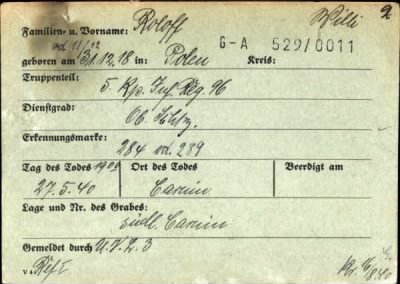 Familien- u. Vorname: Roloff Willi 2
od 11/12 G-A 529/0011
geboren am 31.12.18 in: Polen Kreis:
Truppenteil:
5. Kp. Inf. Reg. 96
Dienstgrad:
Ob. Schtz.
Erkennungsmarke:
284 od. 289
Tag des Todes 1900 Ort des Todes Beerdigt am
27.5.40 Carnin
Lage und Nr. des Grabes:
südl. Carnin
Gemeldet durch U.V.L. 3
V 4 Ref I